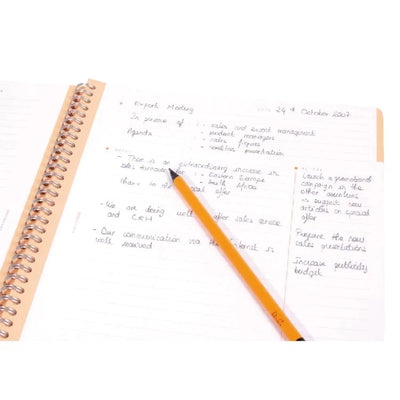 Export Meeting
24th October 2007
In presence of : - sales and export management
- product managers
Agenda : - sales figures
- presentation
- There is an extraordinary increase in
sales turnover in : - Eastern Europe
- South Africa
thanks to the special offer
- We are doing well after sales service
and CRM
- Our communication via the internet is
well received
Launch a promotional
campaign in the
other countries
→ suggest new
articles on special
offer
Prepare the new
sales presentations
Increase publicity
budget